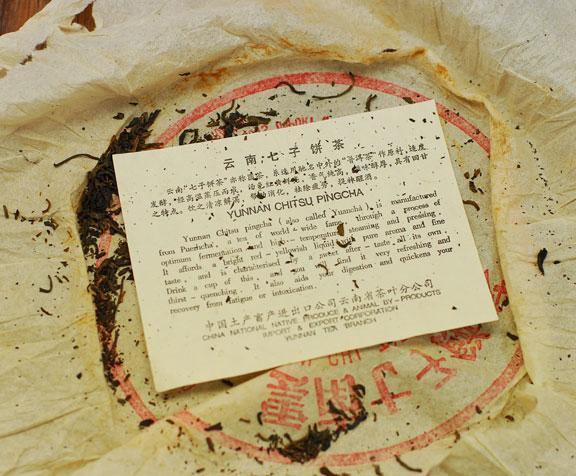 云南七子饼茶
云南"七子饼茶"亦称圆茶,系选用驰名中外的"普洱茶"作原料,适度
发酵,经高温蒸压而成。汤色红黄鲜亮,香气纯高,滋味醇厚,具有回甘
之特点。饮之清凉解渴,帮助消化,祛除疲劳,提神醒酒。
YUNNAN CHITSU PINGCHA
Yunnan Chitsu pingcha (also called Yuancha) is manufactured
from Puerhcha, a tea of world-wide fame, through a process of
optimum fermentation and high-temperature steaming and pressing.
It affords a bright red-yellowish liquid with pure aroma and fine
taste, and is characterised by a sweet after-taste all its own.
Drink a cup of this, and you will find it very refreshing and
thirst-quenching. It also aids your digestion and quickens your
recovery from fatigue or intoxication.
中国土产畜产进出口公司云南省茶叶分公司
CHINA NATIONAL NATIVE PRODUCE & ANIMAL BY-PRODUCTS
IMPORT & EXPORT CORPORATION
YUNNAN TEA BRANCH